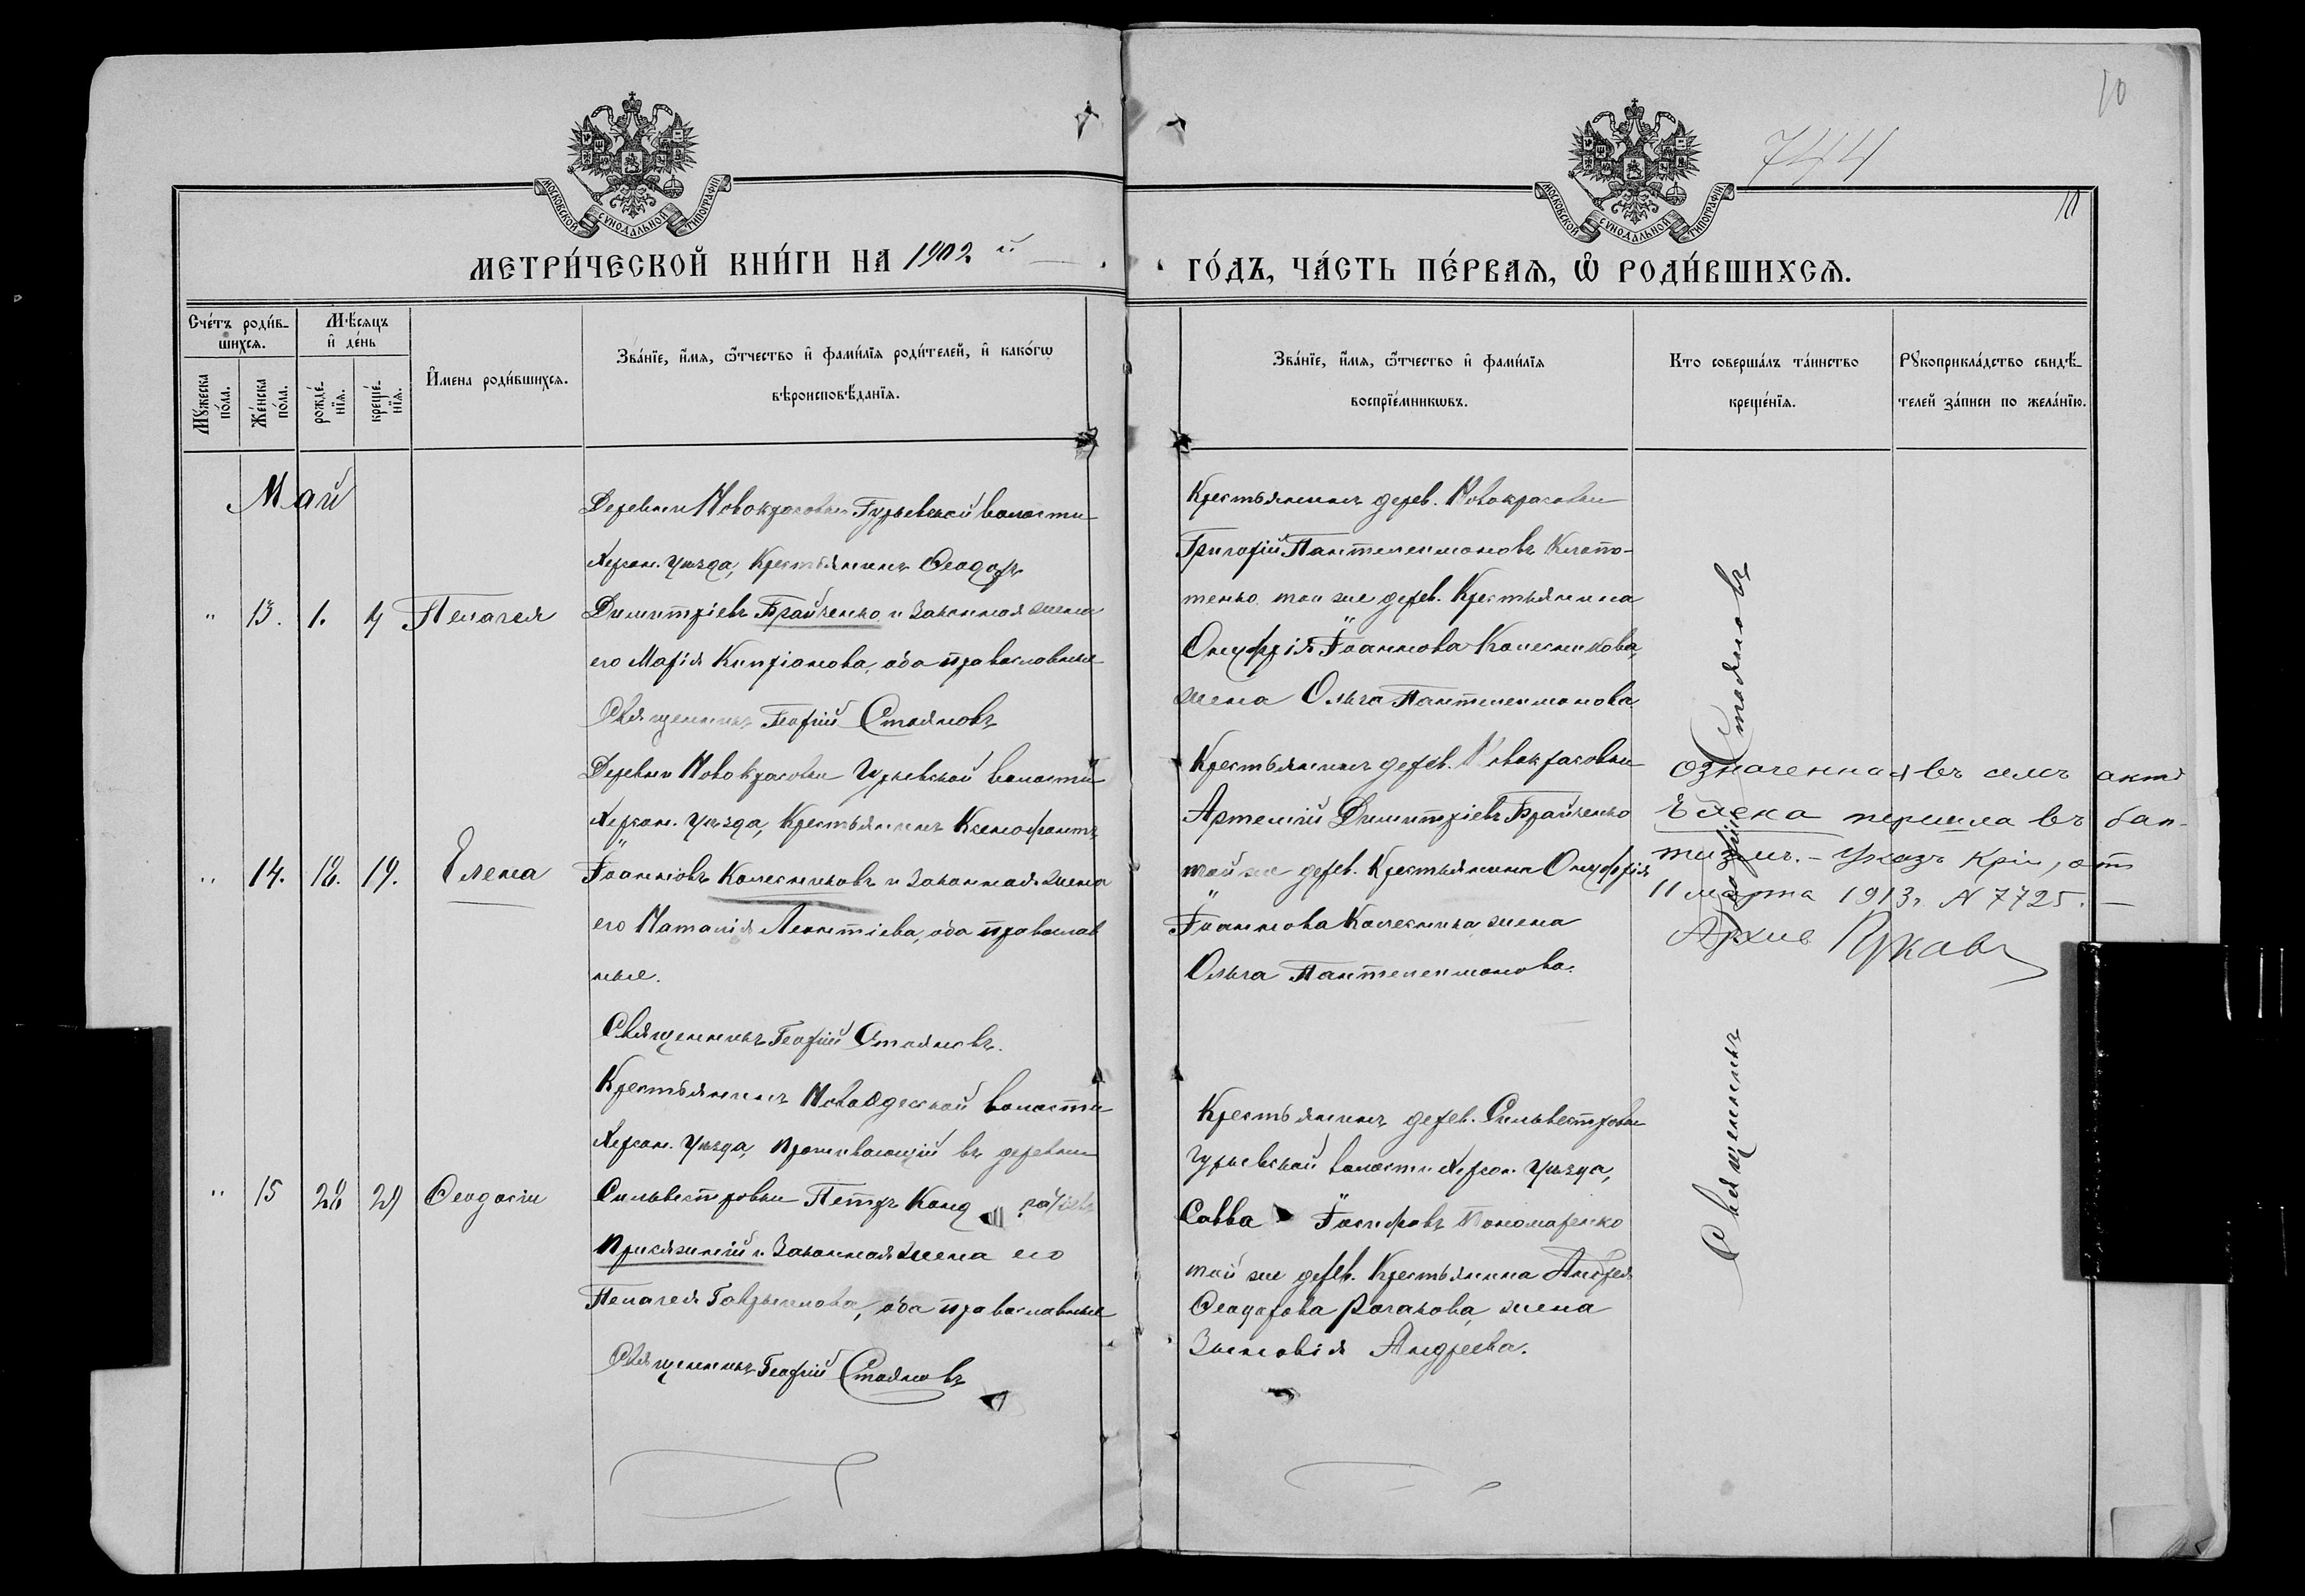 10
744
10
МОСКОВСКОЙ СѴНОДАЛЬНОЙ ТИПОГРАФІИ
МОСКОВСКОЙ СѴНОДАЛЬНОЙ ТИПОГРАФІИ
МЕТРИ́ЧЕСКОЙ КНИ́ГИ НА 1902 й
ГО́ДЪ, ЧА́СТЬ ПЕ́РВАѦ, Ѡ҆ РОДИ́ВШИХСѦ.
Сче́тъ роди́в-
шихсѧ.
Мꙋ́жеска по́ла.
Же́нска по́ла.
Мѣ́сѧцъ и҆ де́нь
рожде́-нїѧ.
креще́-нїѧ.
И҆мена роди́вшихсѧ.
Зва́нїе, и҆́мѧ, ѻ҆́тчество и҆ фами́лїѧ роди́телей, и҆ како́гѡ
вѣроисповѣ́данїѧ.
Зва́нїе, и҆́мѧ, ѻ҆́тчество и҆ фами́лїѧ
воспрїе́мникѡвъ.
Кто соверша́лъ та́инство
креще́нїѧ.
Рꙋкоприкла́дство свидѣ́-
телей за́писи по жела́нїю.
Май
" 13. 1. 4 Пелагея
Деревни Новокрасовки Гурьевской волости
Херсон. уѣзда, Крестьянинъ Ѳеодоръ
Димитріевъ Брайченко и законная жена
его Марія Кипріанова, оба православные
Священникъ Георгій Стояновъ
Крестьянинъ дерев. Новокрасовки
Григорій Пантелеимоновъ
тенко той же дерев. Крестьянина
Онуфрія Іоаннова Колесникова,
жена Ольга Пантелеимонова
" 14. 18. 19. Елена
Деревни Новокрасовки Гурьевской волости
Херсон. уѣзда, Крестьянинъ Ксенофонтъ
Іоанновъ Колесниковъ и законная жена
его Наталія Леонтіева, оба православ
ные.
Священникъ Георгій Стояновъ.
Крестьянинъ дерев. Новокрасовки
Артемій Димитріевъ Брайченко
той же дерев. Крестьянина Онуфрія
Іоаннова Колесника жена
Ольга Пантелеимонова.
Означенная въ семъ актѣ
Елена перешла въ бап-
тизмъ. – Указъ от
11 марта 1913г. N 7725. –
" 15 28 29 Ѳеодосія
Крестьянинъ Новоодесской волости
Херсон. уѣзда, проживающій въ деревни
Сильвестровки Петръ Конд ратіевъ
и законная жена его
Пелагея Гавриилова, оба православные
Священникъ Георгій Стояновъ
Крестьянинъ дерев. Сильвестровки
Гурьевской волости Херсон. уѣзда,
Савва Іосифовъ Пономаренко
той же дерев. Крестьянина Андрея
Ѳеодорова Рогакова, жена
Зиновія Андреева.
Священникъ Георгій Стояновъ